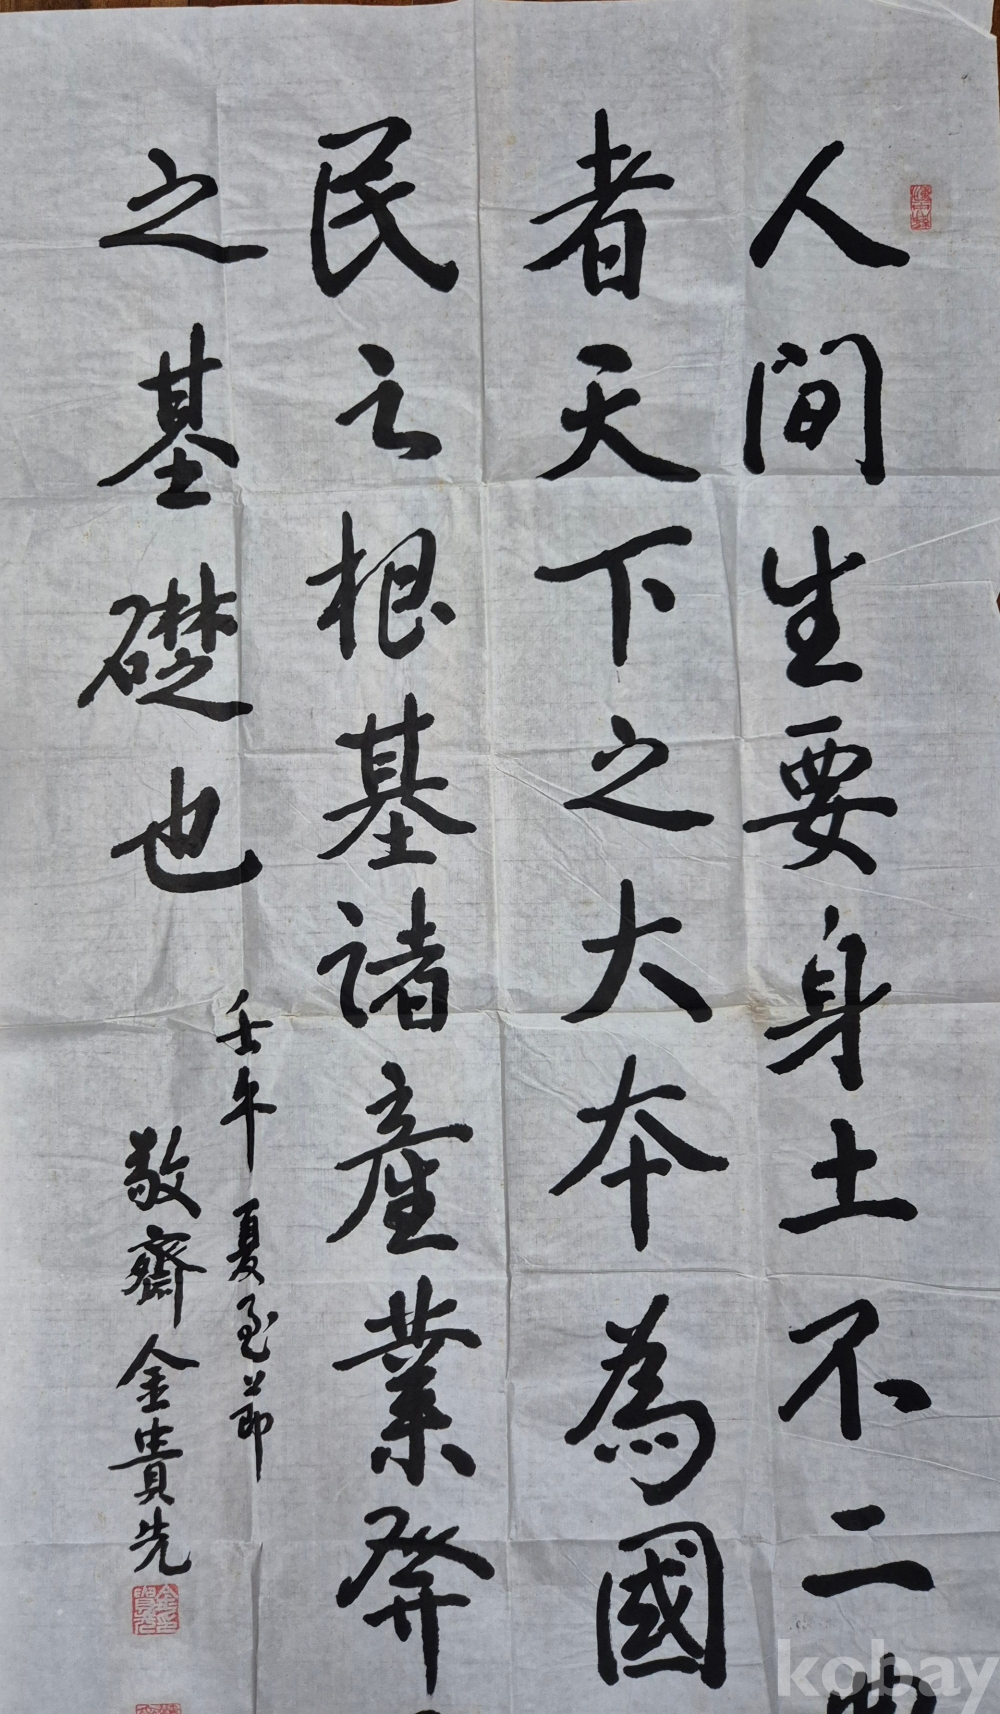 人間生要身土不二
者天下之大本為國
民之根基諸產業發
之基礎也
壬午 夏至節
敬齋金貴先
kobay